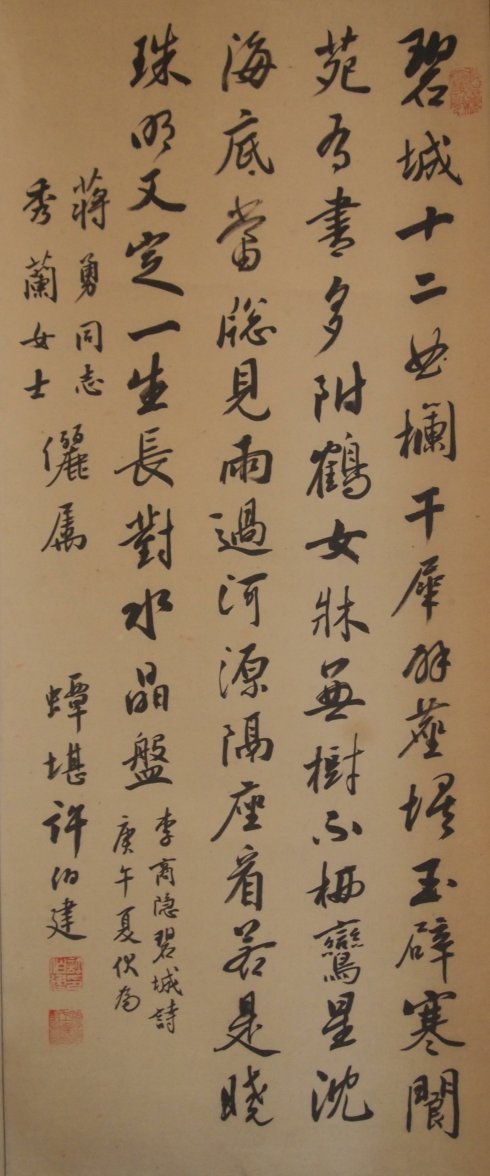 碧城十二曲欄干犀辟塵埃玉辟寒閬
苑有書多附鶴女牀無樹不栖鸞星沈
海底當牕見雨過河源隔座看若是曉
珠明又定一生長對水晶盤
李商隐碧城詩
庚午夏伏為
蔣勇同志
秀蘭女士
儷属
蟫堪许伯建